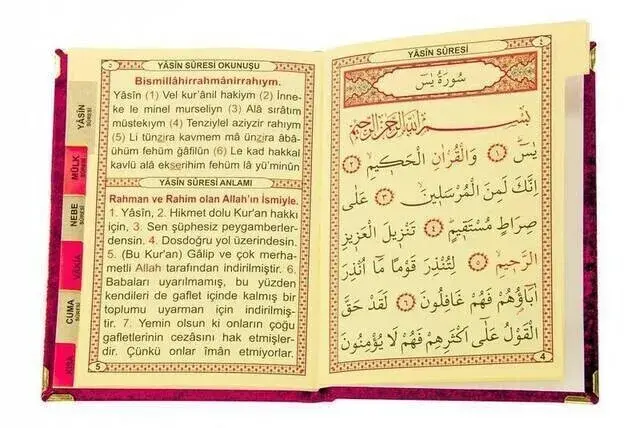 YÂSÎN SÛRESİ
٤
سُورَةُ يٰسٓ
بِسْمِ اللّٰهِ الرَّحْمٰنِ الرَّحِيمِ
يٰسٓ ﴿١﴾ وَالْقُرْاٰنِ الْحَكِيمِ ﴿٢﴾
اِنَّكَ لَمِنَ الْمُرْسَلِينَ ﴿٣﴾ عَلٰى
صِرَاطٍ مُسْتَقِيمٍ ﴿٤﴾ تَنْزِيلَ الْعَزِيزِ
الرَّحِيمِ ﴿٥﴾ لِتُنْذِرَ قَوْمًا مَٓا اُنْذِرَ
اٰبَٓاؤُهُمْ فَهُمْ غَافِلُونَ ﴿٦﴾ لَقَدْ حَقَّ
الْقَوْلُ عَلٰٓى اَكْثَرِهِمْ فَهُمْ لَا يُؤْمِنُونَ
4
٥
YÂSÎN SÛRESİ OKUNUŞU
Bismillâhirrahmânirrahıym.
Yâsîn (1) Vel kur'ânil hakiym (2) İnne-
ke le minel murseliyn (3) Alâ sırâtım
müstekıym (4) Tenziylel aziyzir rahıym
(5) Li tünzira kavmem mâ ünzira âbâ-
ühüm fehüm ğâfilûn (6) Le kad hakkal
kavlü alâ ekserihim fehüm lâ yü'minûn
YÂSÎN SÛRESİ ANLAMI
Rahman ve Rahim olan Allah'ın İsmiyle.
1. Yâsîn, 2. Hikmet dolu Kur'an hakkı
için, 3. Sen şüphesiz peygamberler-
densin. 4. Dosdoğru yol üzerindesin.
5. (Bu Kur'an) Gâlip ve çok merha-
metli Allah tarafından indirilmiştir. 6.
Babaları uyarılmamış, bu yüzden
kendileri de gaflet içinde kalmış bir
toplumu uyarman için indirilmiş-
tir. 7. Yemin olsun ki onların çoğu
gafletlerinin cezasını hak etmişler-
dir. Çünkü onlar îmân etmiyorlar.
5
YÂSÎN
SÛRESİ
MÜLK
SÛRESİ
NEBE
SÛRESİ
VÂKIA
CUMA
SÛRESİ
KISA